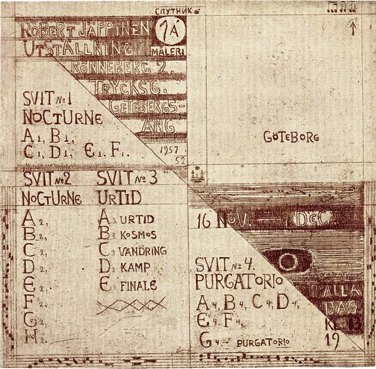 СПУТНИК
ROBERT JÄPPINEN
1Å
UTSTÄLLNING
MÅLERI
RÖNNEBERG 2
TRYCKS G.
GÖTEBERGS-
ÄNG
1957
SVIT № 1
NOCTURNE
A1, B1,
C1, D1, E1, F1.
GÖTEBORG
SVIT № 2
NOCTURNE
A2,
B2,
C2,
D2,
E2,
F2,
G2,
H2.
SVIT № 3
URTID
A3 URTID
B3 KOSMOS
C3 VANDRING
D3 KAMP
E3 FINALE
16 NOV. —
SVIT № 4.
PURGATORIO
A4, B4, C4, D4,
E4, F4,
G4 — PURGATORIO
ALLA
DAG
19